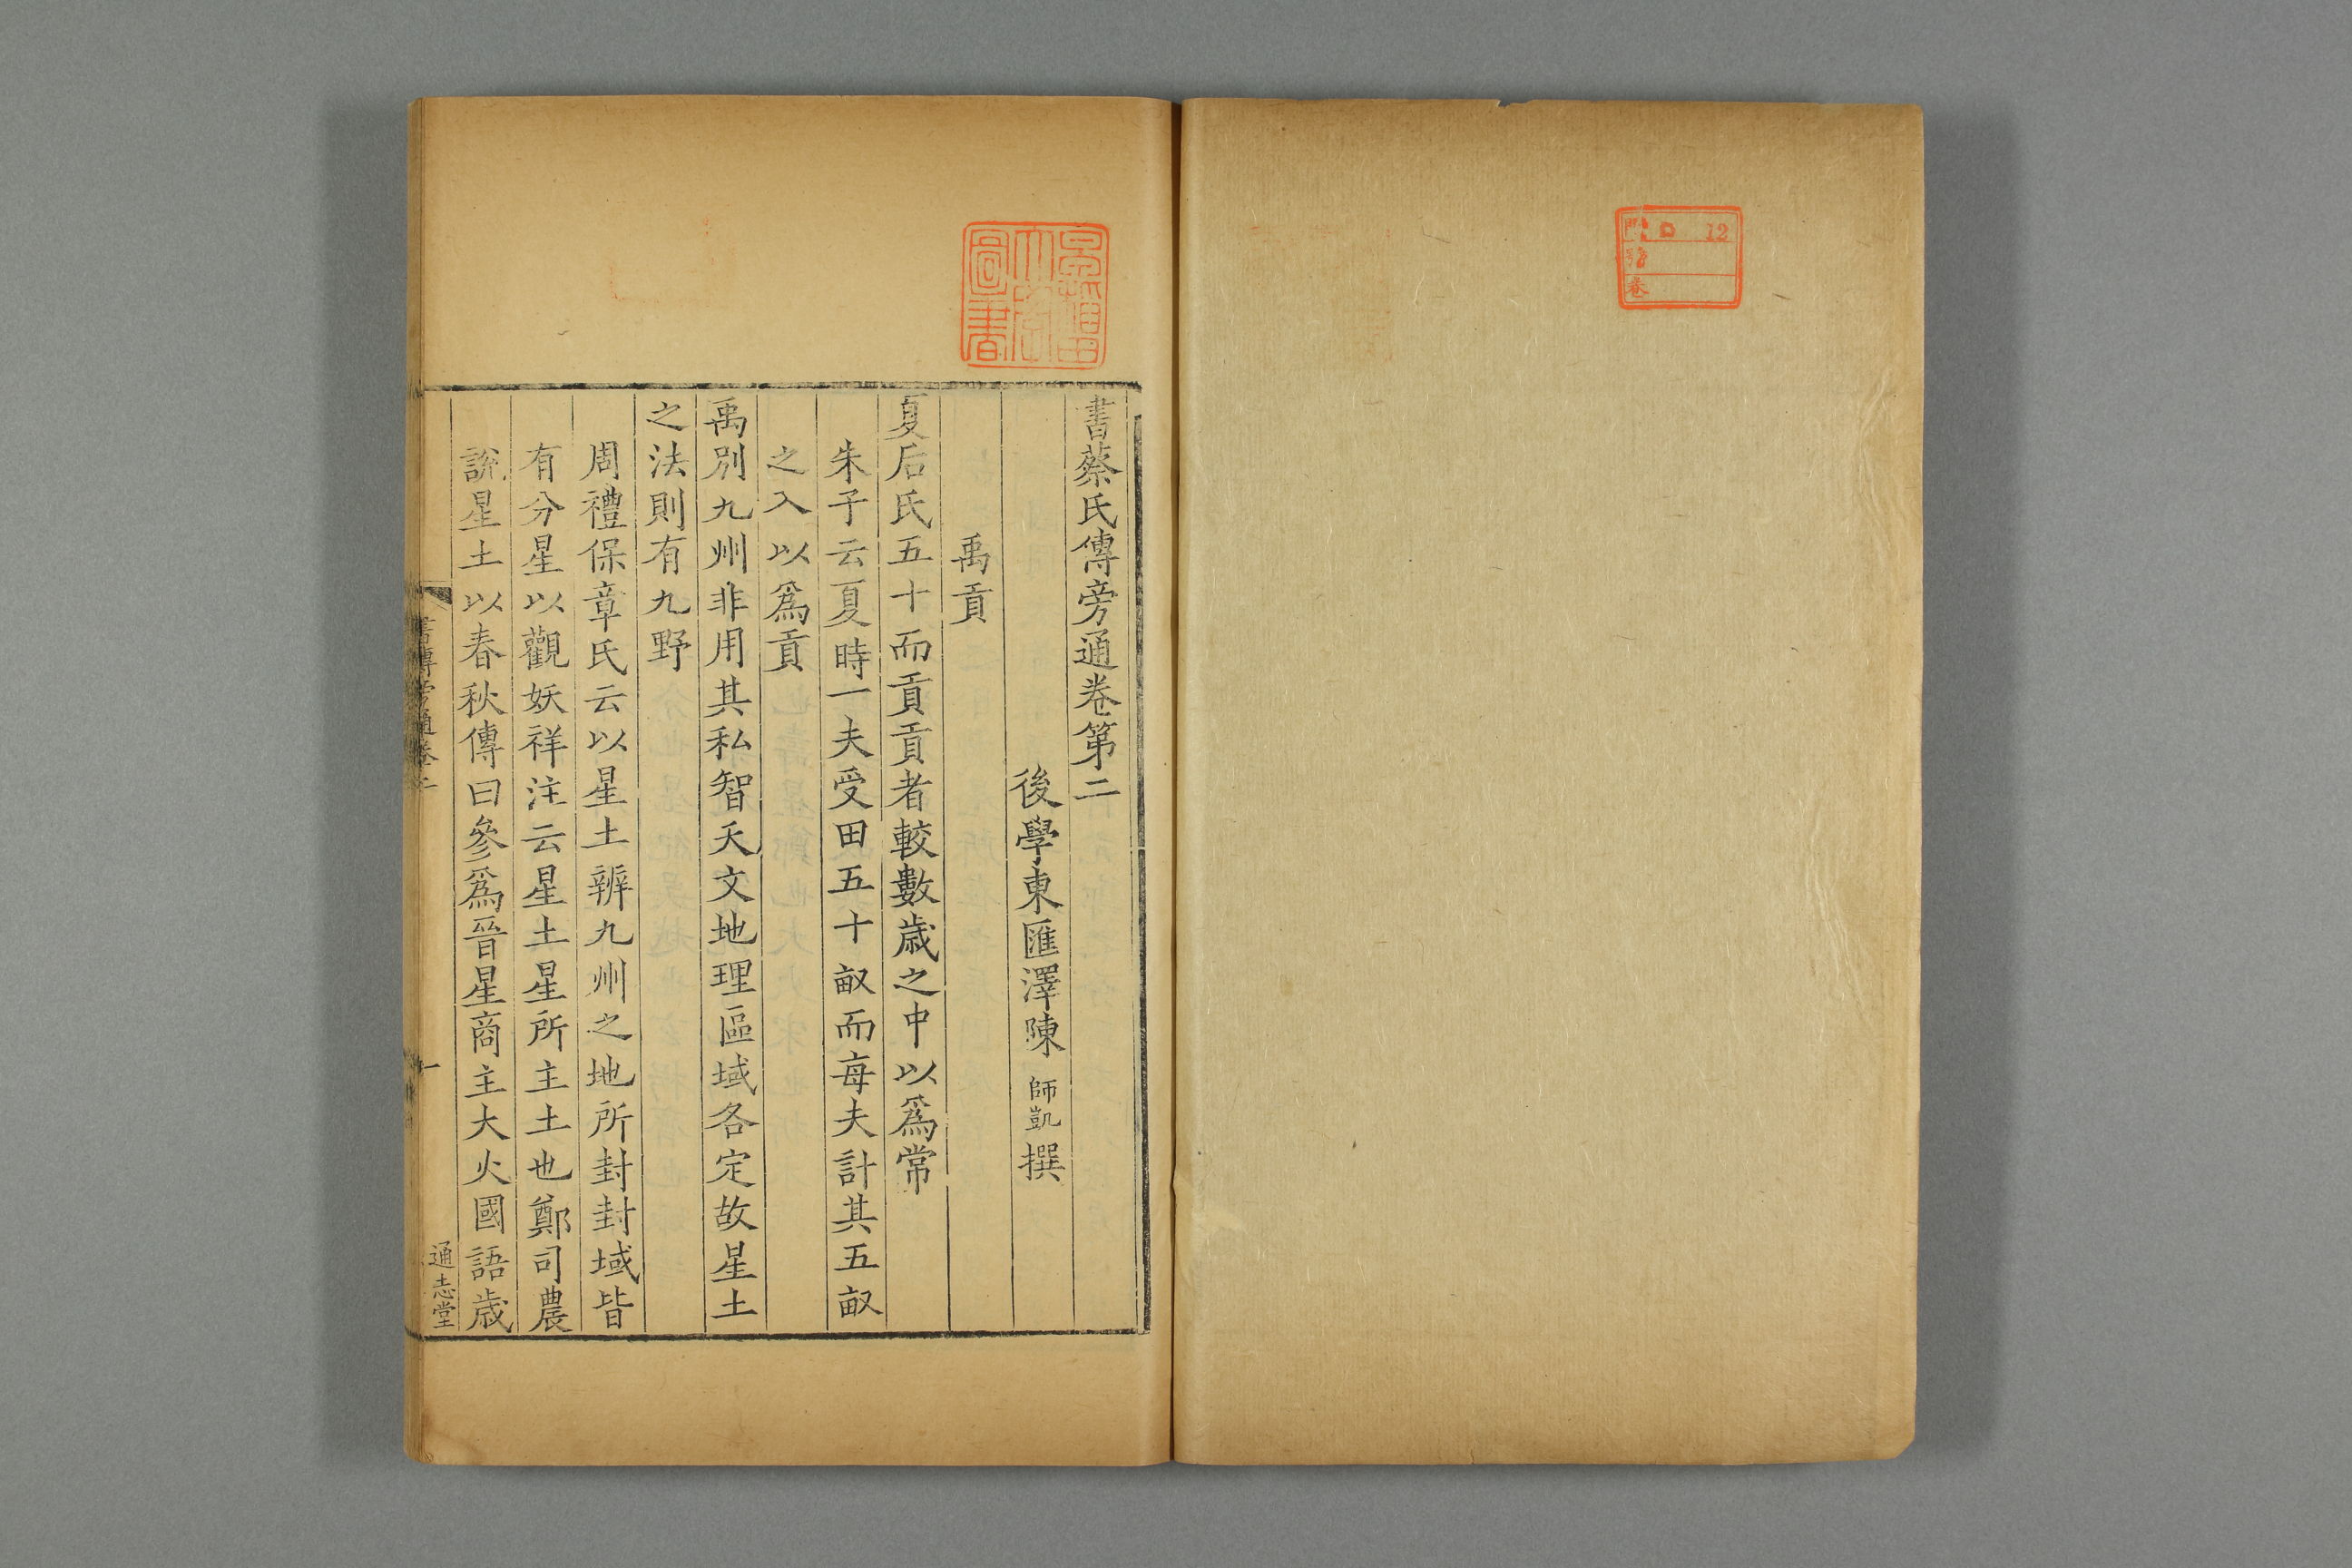 12
門
號
卷
書蔡氏傳旁通卷第二
後學東匯澤陳師凱撰
禹貢
夏后氏五十而貢貢者較數歲之中以爲常
朱子云夏時一夫受田五十畝而每夫計其五畝
之入以爲貢
禹別九州非用其私智天文地理區域各定故星土
之法則有九野
周禮保章氏云以星土辨九州之地所封封域皆
有分星以觀妖祥注云星土星所主土也鄭司農
說星土以春秋傳曰參爲晉星商主大火國語歲
書傳旁通卷二
一
通志堂
圖書